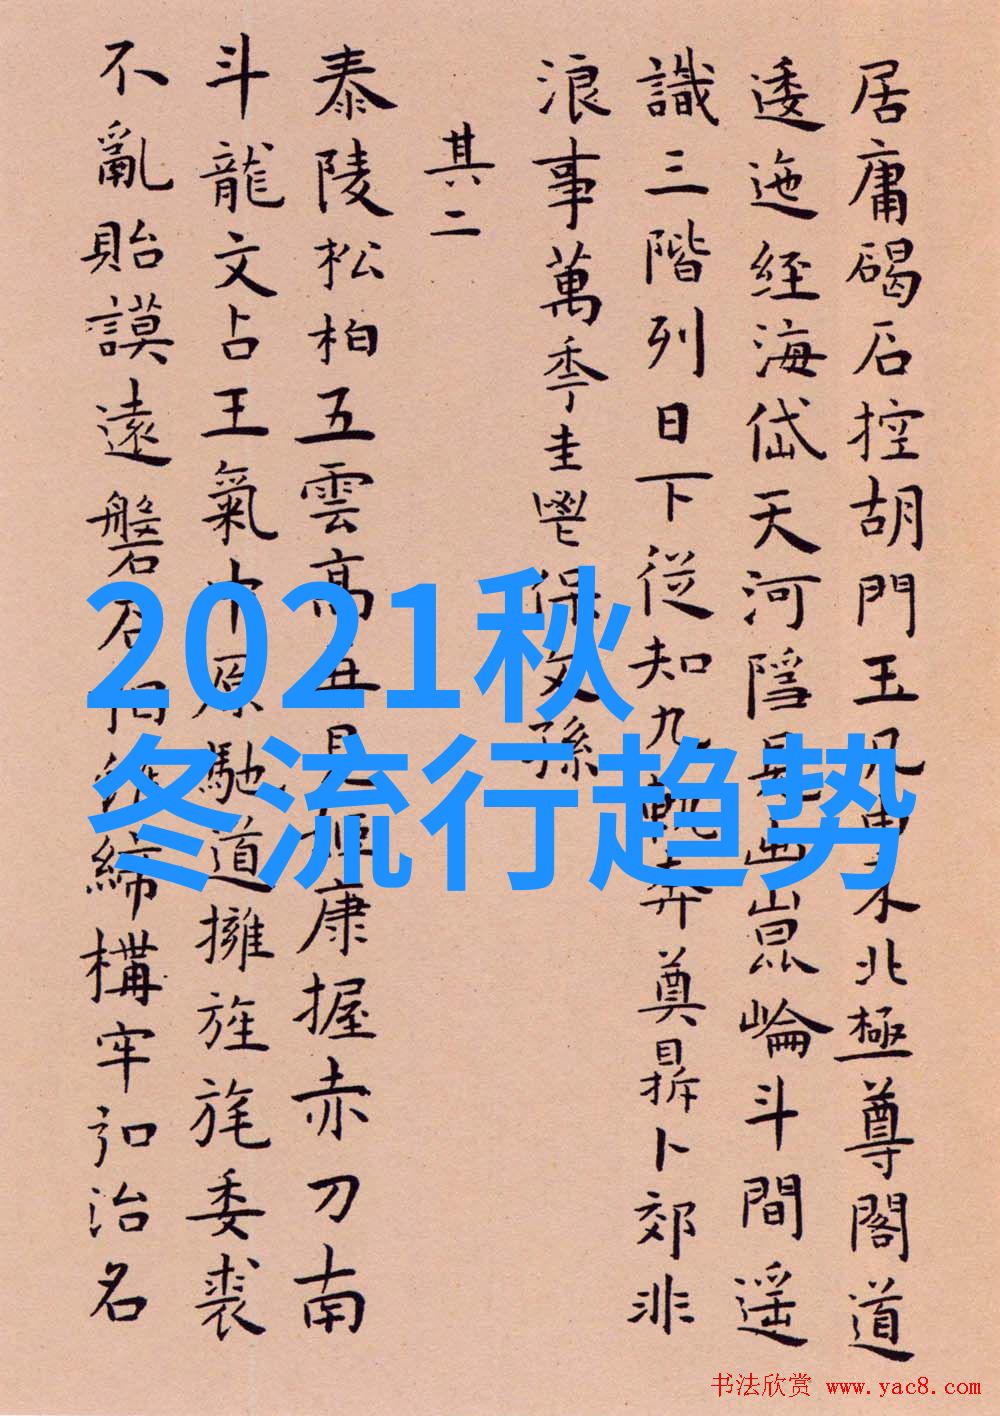 居庸碣石控胡門玉
北極尊閣道
逶迤經海岱天河隱
崑崙斗間遥
識三階列日下從知九
奔奠鼎卜郊非
浪事萬季圭鬯保文孫
其二
泰陵松柏五雲高
康握赤刀南
斗龍文占王氣中原馳道擁旌旄委裘
不亂貽謨遠磐石
締構牢
治名
2021秋
冬流行趋势
书法欣赏 www.yac8.com